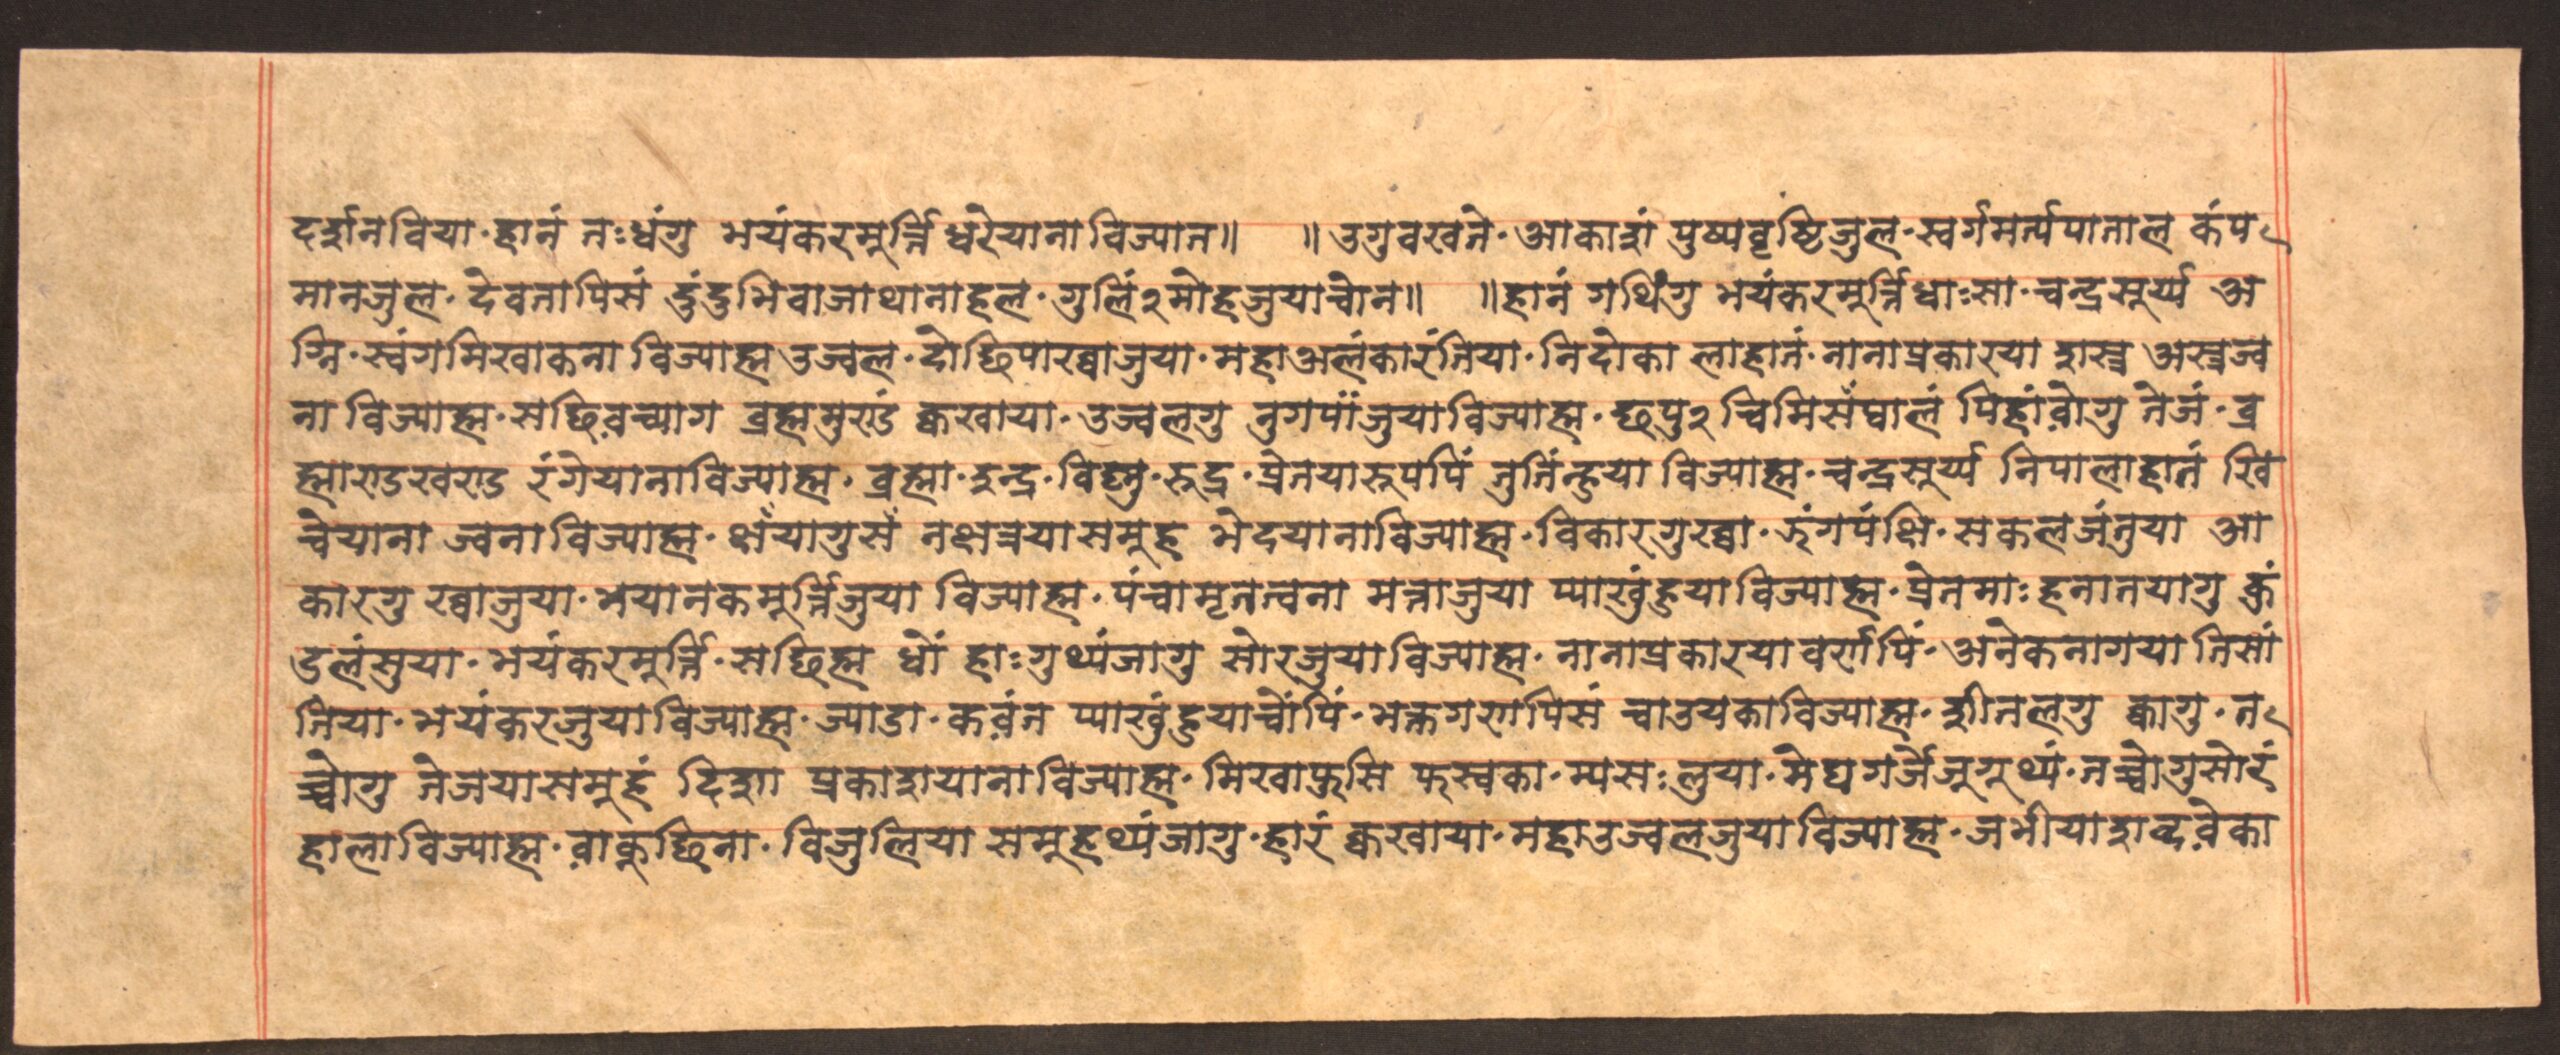 दर्शनविया·ह्वानं नःध्वंगु भयंकरमूर्त्ति ध्वरेयाना विज्यात॥ ॥उगुवखते·आकाशं पुष्पवृष्टिजुल·स्वर्गमर्त्यपाताल कंप
मानजुल·देवतापिसं दुंदुभिवाजाथानाहल·गुलिं२मोहजुयाच्वोन॥ ॥हानं गथिंगु भयंकरमूर्त्तिधाःसा·चन्द्रसूर्य्य अ
ग्नि·स्वंगमिखाकना विज्याह्म उज्वल·दोछिपाख्वाजुया·महाअलंकारंतिया·निदोका लाहातं·नानाप्रकारया शस्त्र अस्त्रज्व
ना विज्याह्म·सछिवच्याग ब्रह्ममुण्ड क्वखाया·उज्वलगु नुगपांजुयाविज्याह्म·छपु२चिमिसंघालं पिहांवोगु तेजं·ब्र
ह्माण्डखण्ड रंगेयानाविज्याह्म·ब्रह्मा·इन्द्र·विष्णु·रुद्र·प्रेतयारूपपिं नुतिंन्हुया विज्याह्म·चन्द्रसूर्य्य निपालाहातं खि
चेयाना ज्वना विज्याह्म·क्षंयागुसं नक्षत्रयासमूह भेदयानाविज्याह्म·विकारगुख्वा·ऋंगपंक्षि·सकलजंतुया आ
कारगु ख्वाजुया·भयानकमूर्त्तिजुया विज्याह्म·पंचामृतत्वना मत्ताजुया प्याखुंहुयाविज्याह्म·प्रेतमाःहनातयागु कुं
डलंसुया·भयंकरमूर्त्ति·सछिह्म धों हाःगुथ्यंजागु सोरजुयाविज्याह्म·नानाप्रकारया वर्णपिं·अनेकनागया तिसां
तिया·भयंकरजुयाविज्याह्म·ज्याडा·कवंत प्याखुंहुयाच्वोंपिं·भक्तगणपिसं चाउयकाविज्याह्म·शीतलगु क्वागु·त
च्वोगु तेजयासमूहं दिशा प्रकाशयानाविज्याह्म·मिखाफुसि फस्वका·म्पसःलुया·मेघगर्जेजूगूथ्यं·तच्वोगुसोरं
हालाविज्याह्म·वाकुछिना·विजुलिया समूहथ्यंजागु·हारं क्वखाया·महाउज्वलजुयाविज्याह्म·जभीयाशव्दवेका